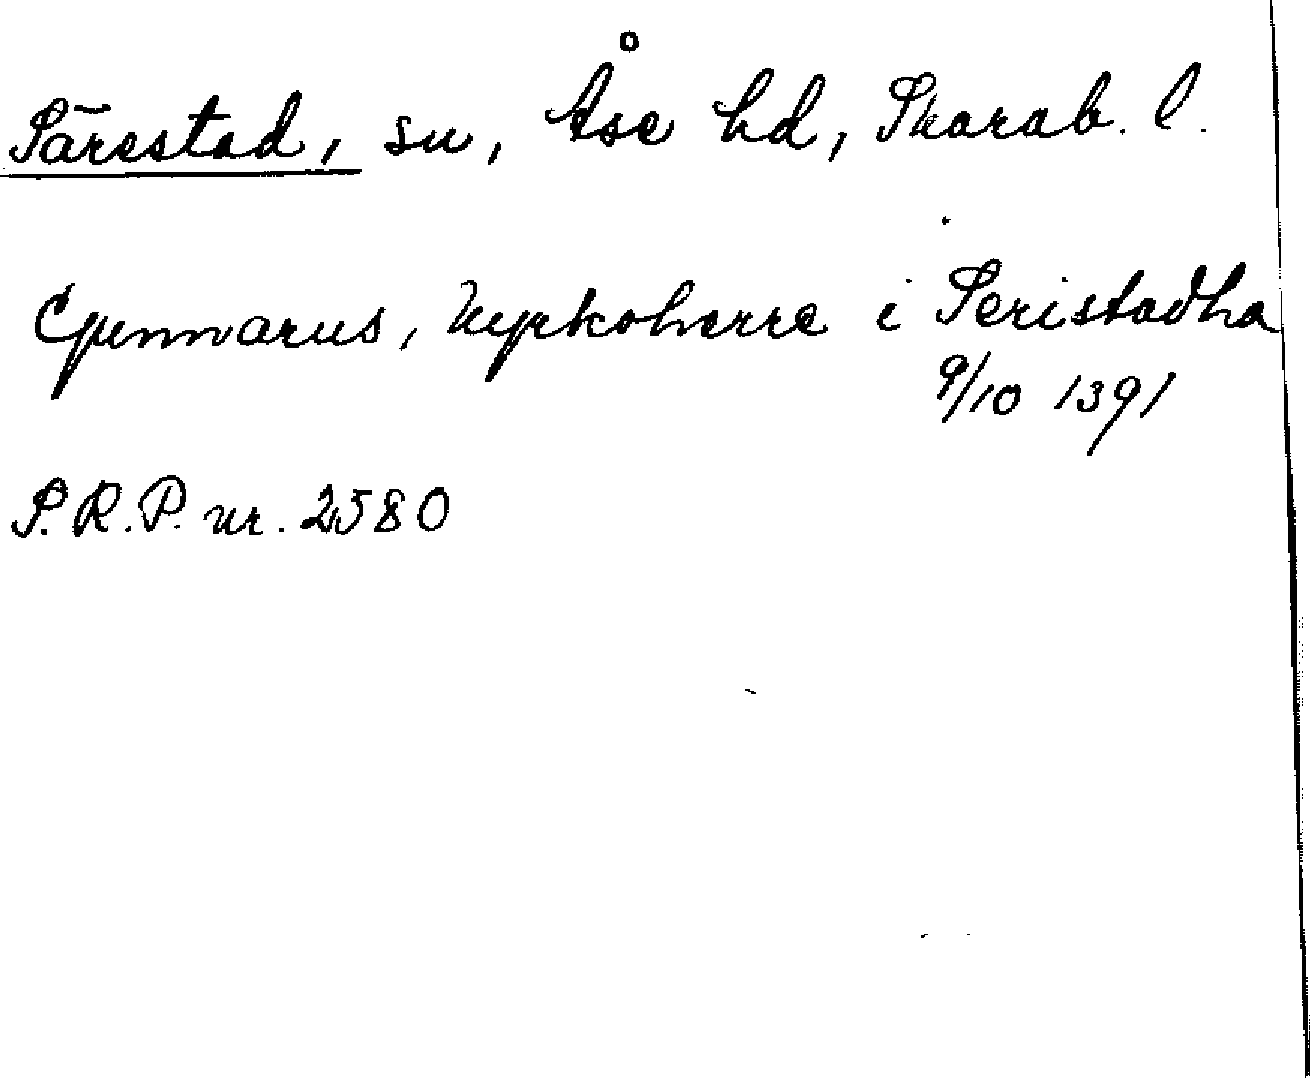 Särestad, sn, Åse hd, Skarab. l.
Gunnarus, kyrkoherre i Seristadha
9/10 1391
S.R.P. nr. 2580